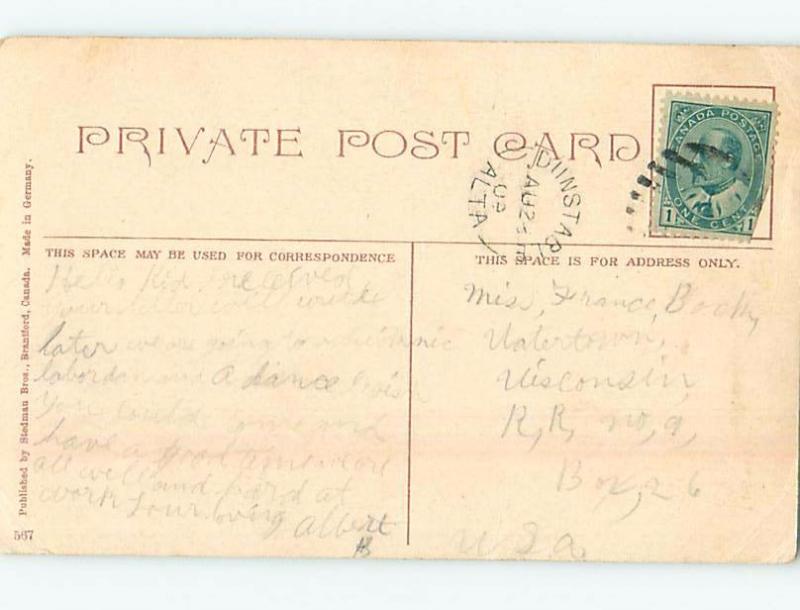 PRIVATE POST CARD
CANADA POSTAGE
1 ONE CENT 1
DUNSTABL
AU 2
ALTA
THIS SPACE MAY BE USED FOR CORRESPONDENCE
Hello Kid received
your letter will write
later we are going to nic
labor day and A dance I wish
you could come and
have a good time we are
all well and hard at
work your loving
Albert
B
THIS SPACE IS FOR ADDRESS ONLY.
Miss, France, Bock,
Watertown,
Wisconsin,
R, R, no, 9,
Box, 26
U S a
Published by Stedman Bros., Brantford, Canada. Made in Germany.
567